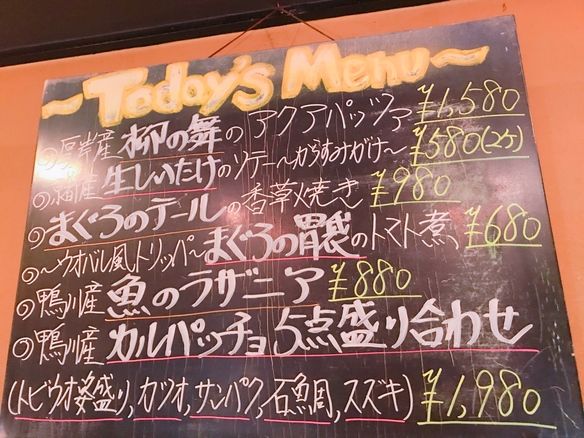 ~Today's Menu~
◎厚岸産 柳の舞のアクアパッツァ ¥1,580
産 生しいたけのソテー~からすみがけ~ ¥580(2ヶ)
◎まぐろのテールの香草焼き ¥980
◎~ウオバル風トリッパ~まぐろの胃袋のトマト煮 ¥680
◎鴨川産 魚のラザニア ¥880
◎鴨川産 カルパッチョ5点盛り合わせ
(トビウオ姿盛り,カツオ,サンパク,石鯛,スズキ) ¥1,980